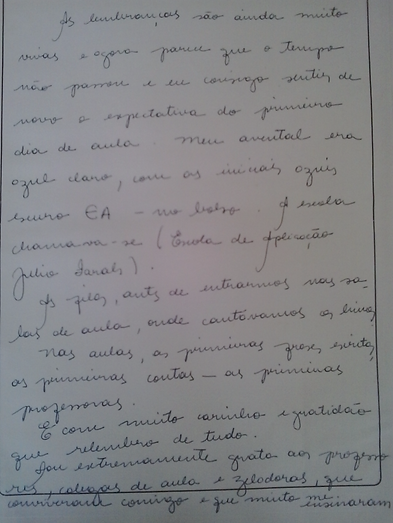 As lembranças são ainda muito
vivas e agora parece que o tempo
não passou e eu consigo sentir de
novo a expectativa do primeiro
dia de aula. Meu avental era
azul claro, com as iniciais azuis
escuro EA - no bolso. A escola
chamava-se (Escola de Aplicação
Julio
As filas, antes de entrarmos nas sa-
las de aula, onde cantávamos os hinos
Nas aulas, as primeiras frases escritas,
as primeiras contas — as primeiras
professoras.
É com muito carinho e gratidão
que relembro de tudo.
Sou extremamente grata aos professo
res, colegas de aula e zeladoras, que
conviveram comigo e que muito me ensinaram